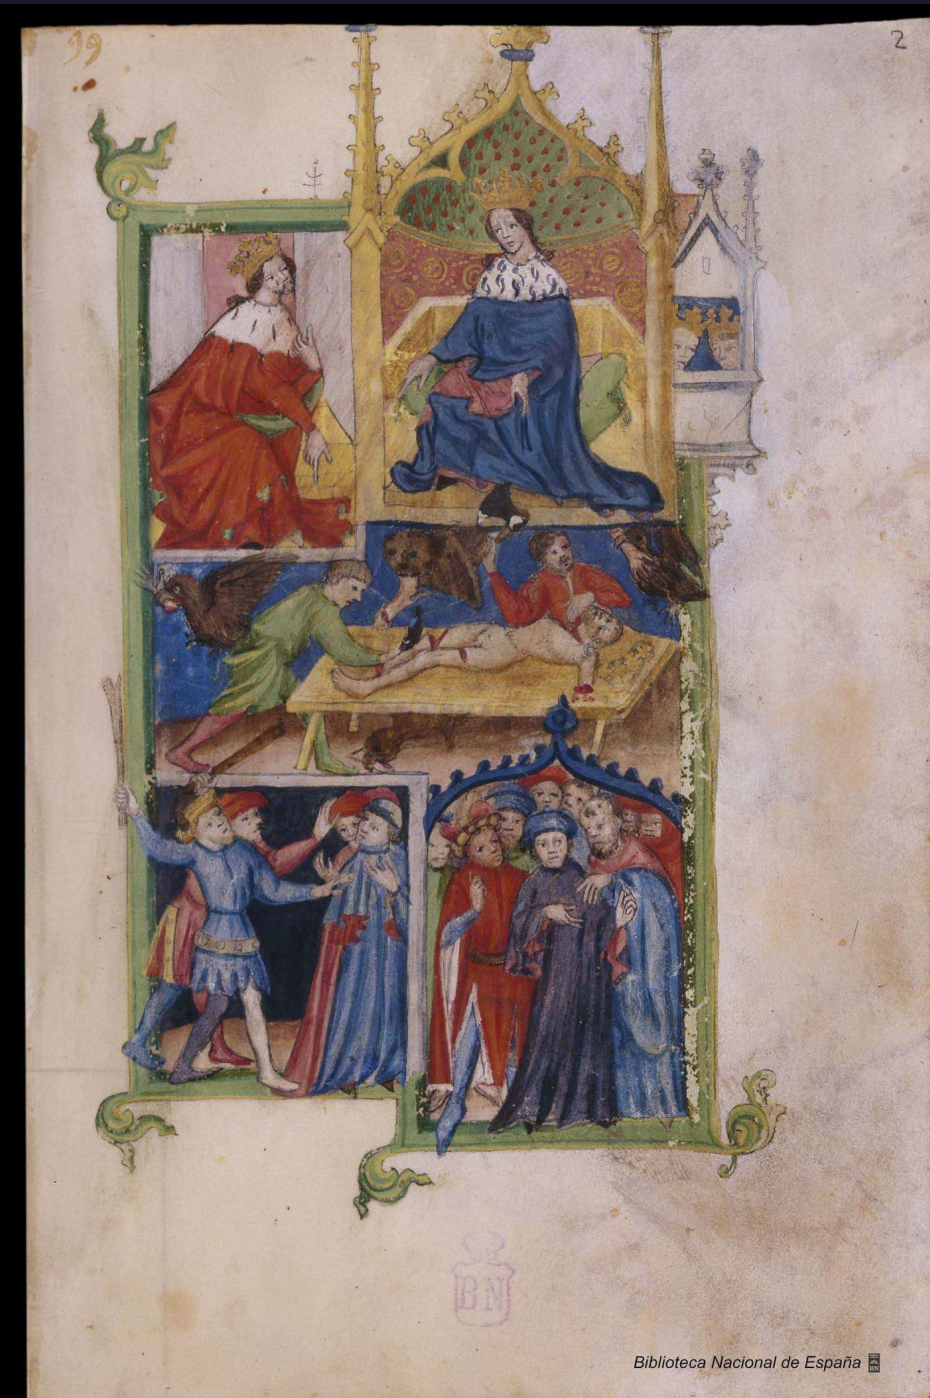 99
2
BN
Biblioteca Nacional de España
BN